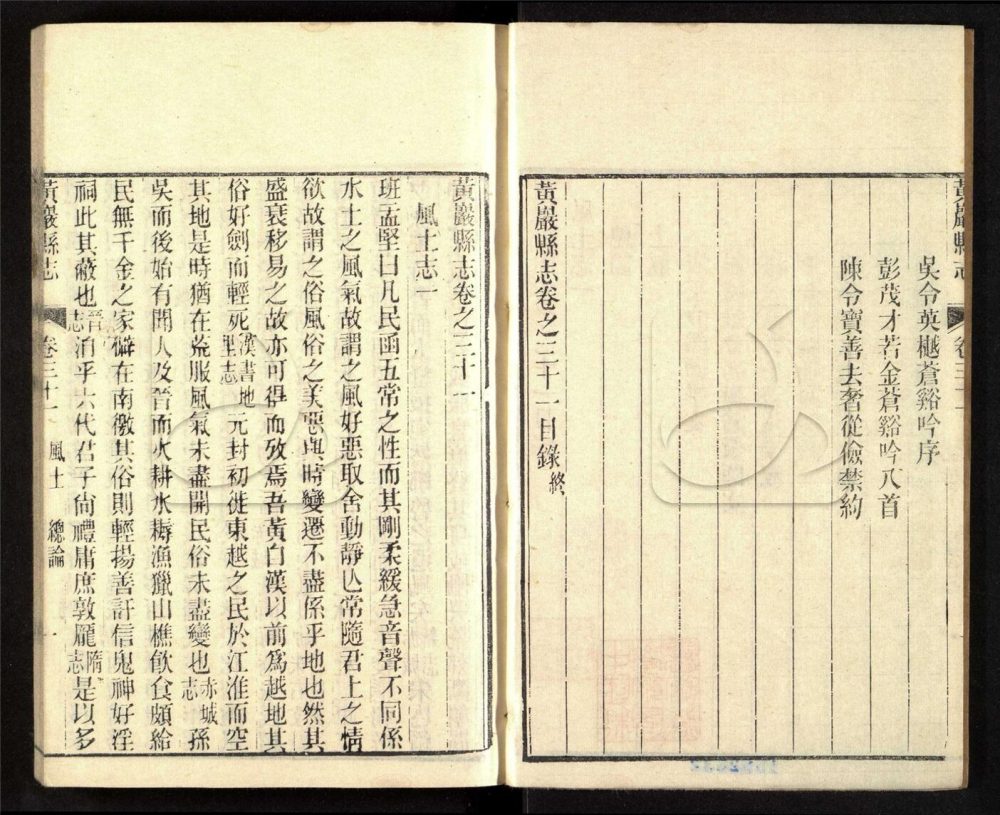 黃巖縣志
卷三十一
吳令英樾蒼谿吟序
彭茂才若金蒼谿吟八首
陳令寶善去奢從儉禁約
黃巖縣志卷之三十一目錄終
黃巖縣志卷之三十一
風土志一
班孟堅曰凡民函五常之性而其剛柔緩急音聲不同係
水土之風氣故謂之風好惡取舍動靜亾常隨君上之情
欲故謂之俗風俗之美惡與時變遷不盡係乎地也然其
盛衰移易之故亦可得而攷焉吾黃自漢以前爲越地其
俗好劍而輕死漢書地里志元封初徙東越之民於江淮而空
其地是時猶在荒服風氣未盡開民俗未盡變也赤城志孫
吳而後始有聞人及晉而火耕水耨漁獵山樵飮食頗給
民無千金之家僻在南徼其俗則輕揚善訐信鬼神好淫
祠此其蔽也晉志洎乎六代君子尙禮庸庶敦龐隋志是以多
黃巖縣志
卷三十一 風土 總論 一
1582632